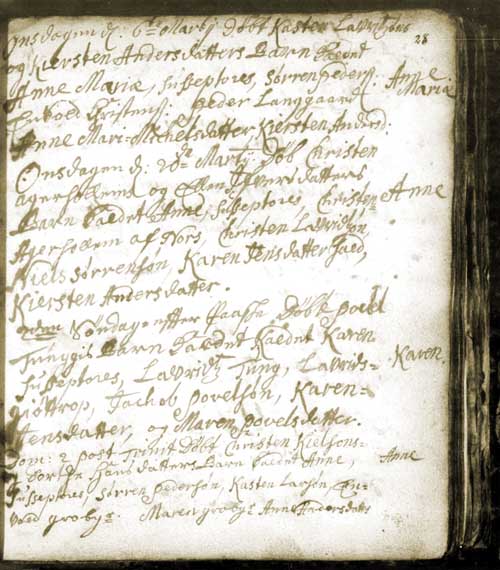 Onsdagen d. 6te Martij Døbt Kasten Lavridsøns
28
og Kiersten Andersdatters Barn kaldt
Anne Mariæ, Susseptores, Sørren peders: Anne Mariæ
Envoed Christens: Peder Langgaard
Anne Mari-Michelsdatter Kiersten Anders:
Onsdagen d: 20de Martij Døb Christen
agerholm og Ellen Iversdatters
Barn kaldet Anne, Susseptores, Christen Anne
Agerholm af Nors, Christen Lavridsøn,
Niels Sørrensøn, Karen Jensdatter
Kiersten Andersdatter.
Søndag effter Paaske Døbt povel
Jungis Barn kaldet Karen
Susseptores, Lavrids Jung, Lavrids- Karen.
Giøttrop, Jachob povelsøn, Karen-
Jensdatter, og Maren povelsdatter.
Dom: 2 post Trinit Døbt Christen Nielsøns-
Hansdatters Barn kaldet Anne, Anne
Susseptores, Sørren pedersøn, Kasten Larsøn, En-
voed groby. Maren groby Anne Andersdatter